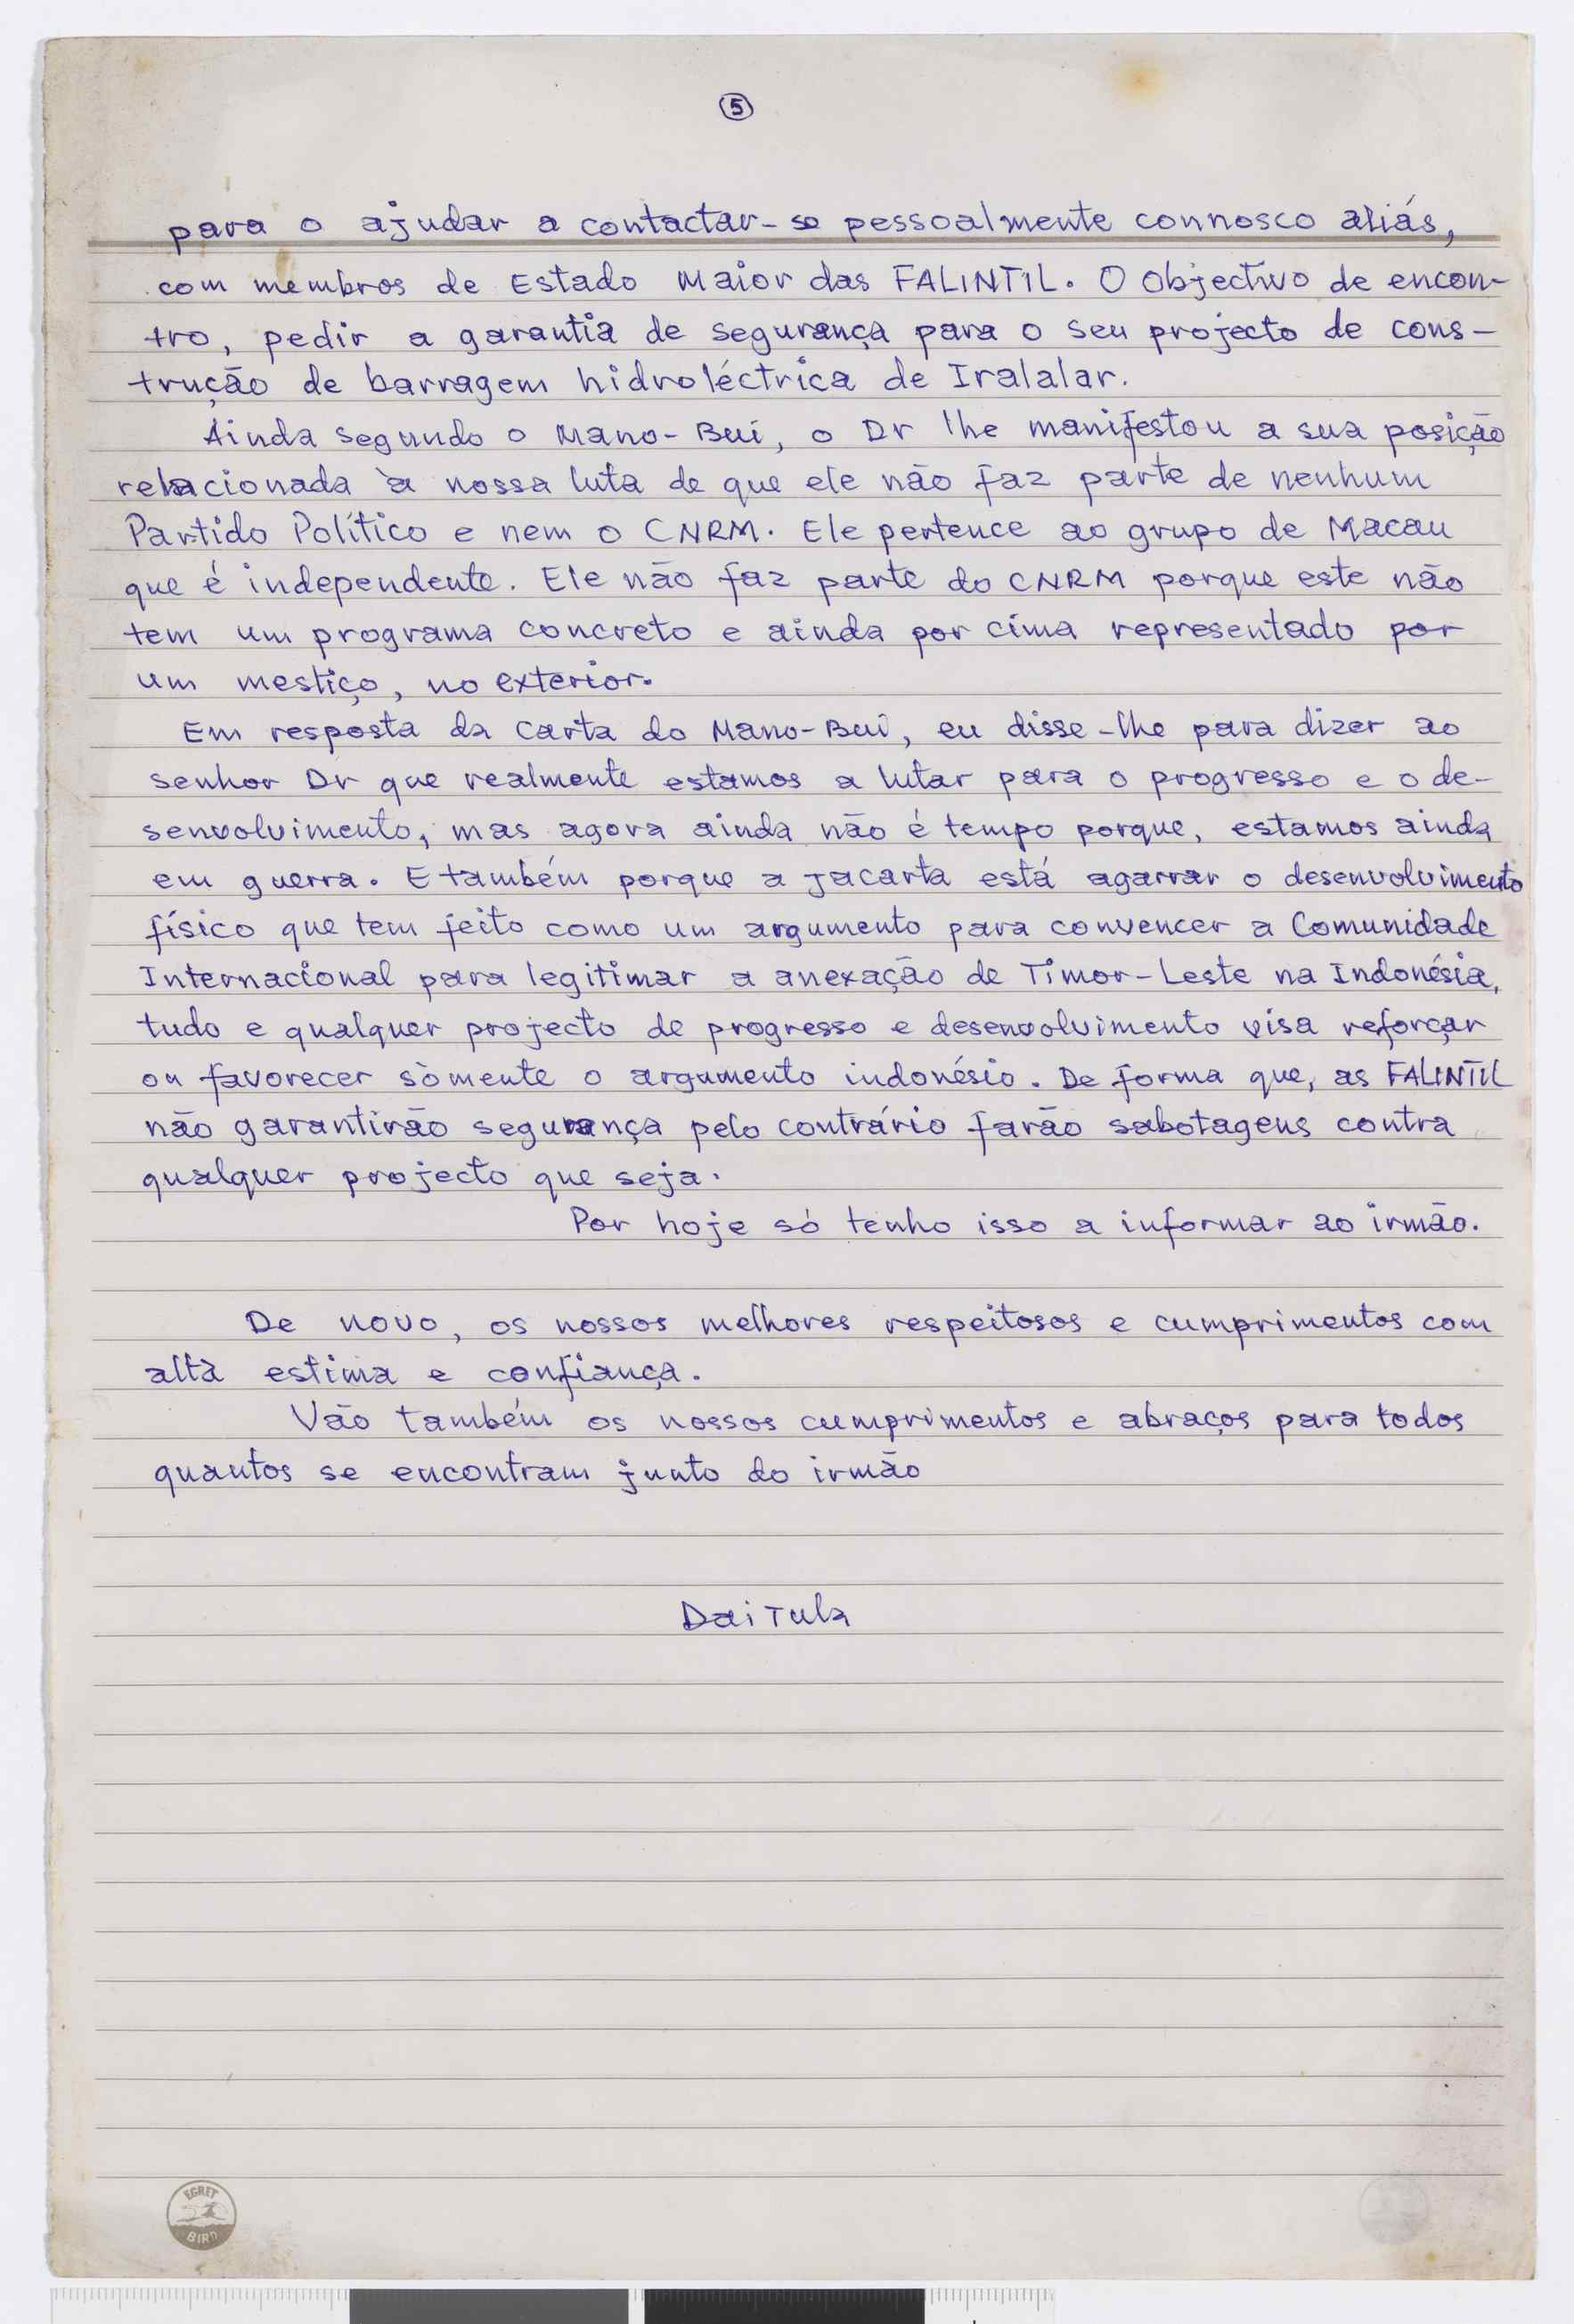 5
para o ajudar a contactar-se pessoalmente connosco aliás,
com membros de Estado Maior das FALINTIL. O Objectivo de encon-
tro, pedir a garantia de segurança para o seu projecto de cons-
trução de barragem hidroléctrica de Iralalar.
Ainda segundo o Mano-Bui, o Dr lhe manifestou a sua posição
relacionada à nossa luta de que ele não faz parte de nenhum
Partido Político e nem o CNRM. Ele pertence ao grupo de Macau
que é independente. Ele não faz parte do CNRM porque este não
tem um programa concreto e ainda por cima representado por
um mestiço, no exterior.
Em resposta da carta do Mano-Bui, eu disse-lhe para dizer ao
senhor Dr que realmente estamos a lutar para o progresso e o de-
senvolvimento, mas agora ainda não é tempo porque, estamos ainda
em guerra. E também porque a Jacarta está agarrar o desenvolvimento
físico que tem feito como um argumento para convencer a Comunidade
Internacional para legitimar a anexação de Timor-Leste na Indonésia,
tudo e qualquer projecto de progresso e desenvolvimento visa reforçar
ou favorecer sòmente o argumento indonésio. De forma que, as FALINTIL
não garantirão segurança pelo contrário farão sabotagens contra
qualquer projecto que seja.
Por hoje só tenho isso a informar ao irmão.
De novo, os nossos melhores respeitosos e cumprimentos com
alta estima e confiança.
Vão também os nossos cumprimentos e abraços para todos
quantos se encontram junto do irmão
Dai Tula
EGRET
BIRD